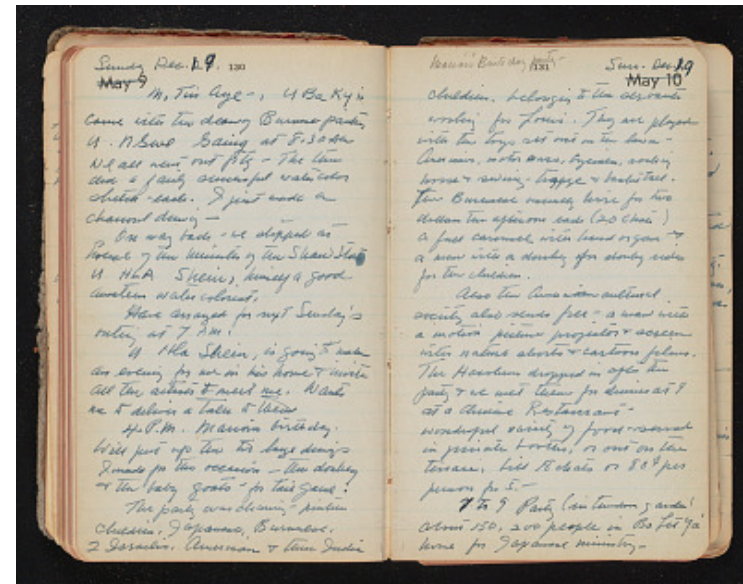 Sunday Dec. 19. 130
May 9
M, Tin Aye -, U Ba Kyi
come with the Burma
U. NGwe Gaing at 8.30 AM
We all went out - The two
did a fairly successful watercolor
sketch - each. I just made a
charcoal drawing -
On way back - we stopped at
home of the minister of the Shan State
U HLA Shein, himself a good
amateur water colorist.
Have arranged for next Sunday's
outing at 7 A.M.
U Hla Shein, is going to make
an evening for me in his home & invite
all the artists to meet me. Wants
me to deliver a talk to them
4 P.M. birthday.
Will put up the two large
I made for the occasion - the donkey
& the baby goats - for tail game!
The party was
children, Japanese, Burmese,
2 Israelis, American & three
Birthday party - 131 Sun. Dec. 19
May 10
children, belonging to the servants
working for . They all played
with the toys set out on the lawn -
, motor cars, , rocking
horse & swing - & basketball.
The Burmese usually hire for two
dollars the afternoon each (20 )
a full carousel with hand organ &
a man with a donkey for donkey rides
for the children.
Also the American cultural
society also sends free - a man with
a motion picture projector & screen
with nature shorts & cartoon films.
The dropped in after the
party & we met them for dinner at 9
at a Chinese Restaurant -
wonderful variety of food - served
in private booths, or out on the
terrace. Bill or 80¢ per
person for 5 -
7 to 9 Party (in garden)
about 150, 200 people in
home for Japanese ministry -